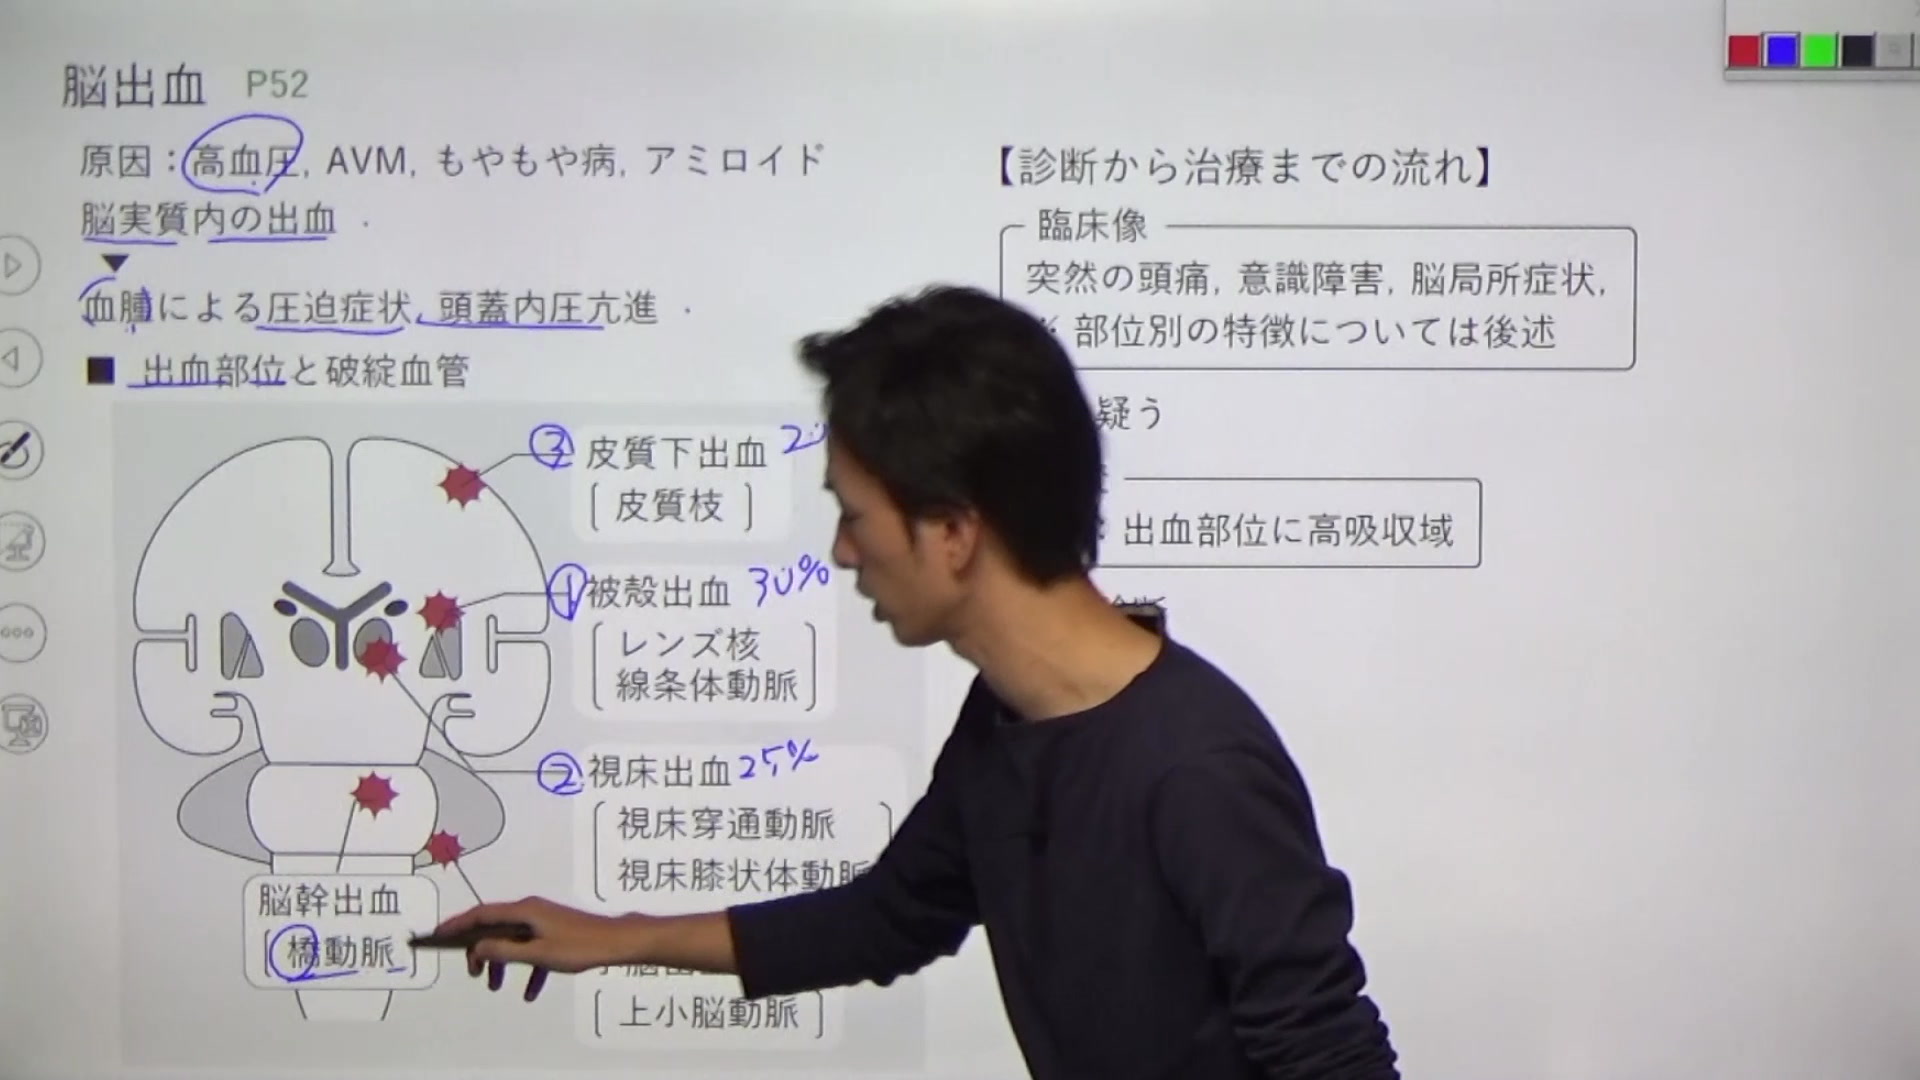 脳出血 P52
原因：高血圧, AVM, もやもや病, アミロイド
脳実質内の出血
▼
血腫による圧迫症状, 頭蓋内圧亢進
■ 出血部位と破綻血管
③ 皮質下出血
[ 皮質枝 ]
① 被殻出血 30%
レンズ核
線条体動脈
② 視床出血 25%
視床穿通動脈
視床膝状体動脈
脳幹出血
[ 橋動脈 ]
[ 上小脳動脈 ]
【診断から治療までの流れ】
臨床像
突然の頭痛, 意識障害, 脳局所症状,
部位別の特徴については後述
疑う
：出血部位に高吸収域